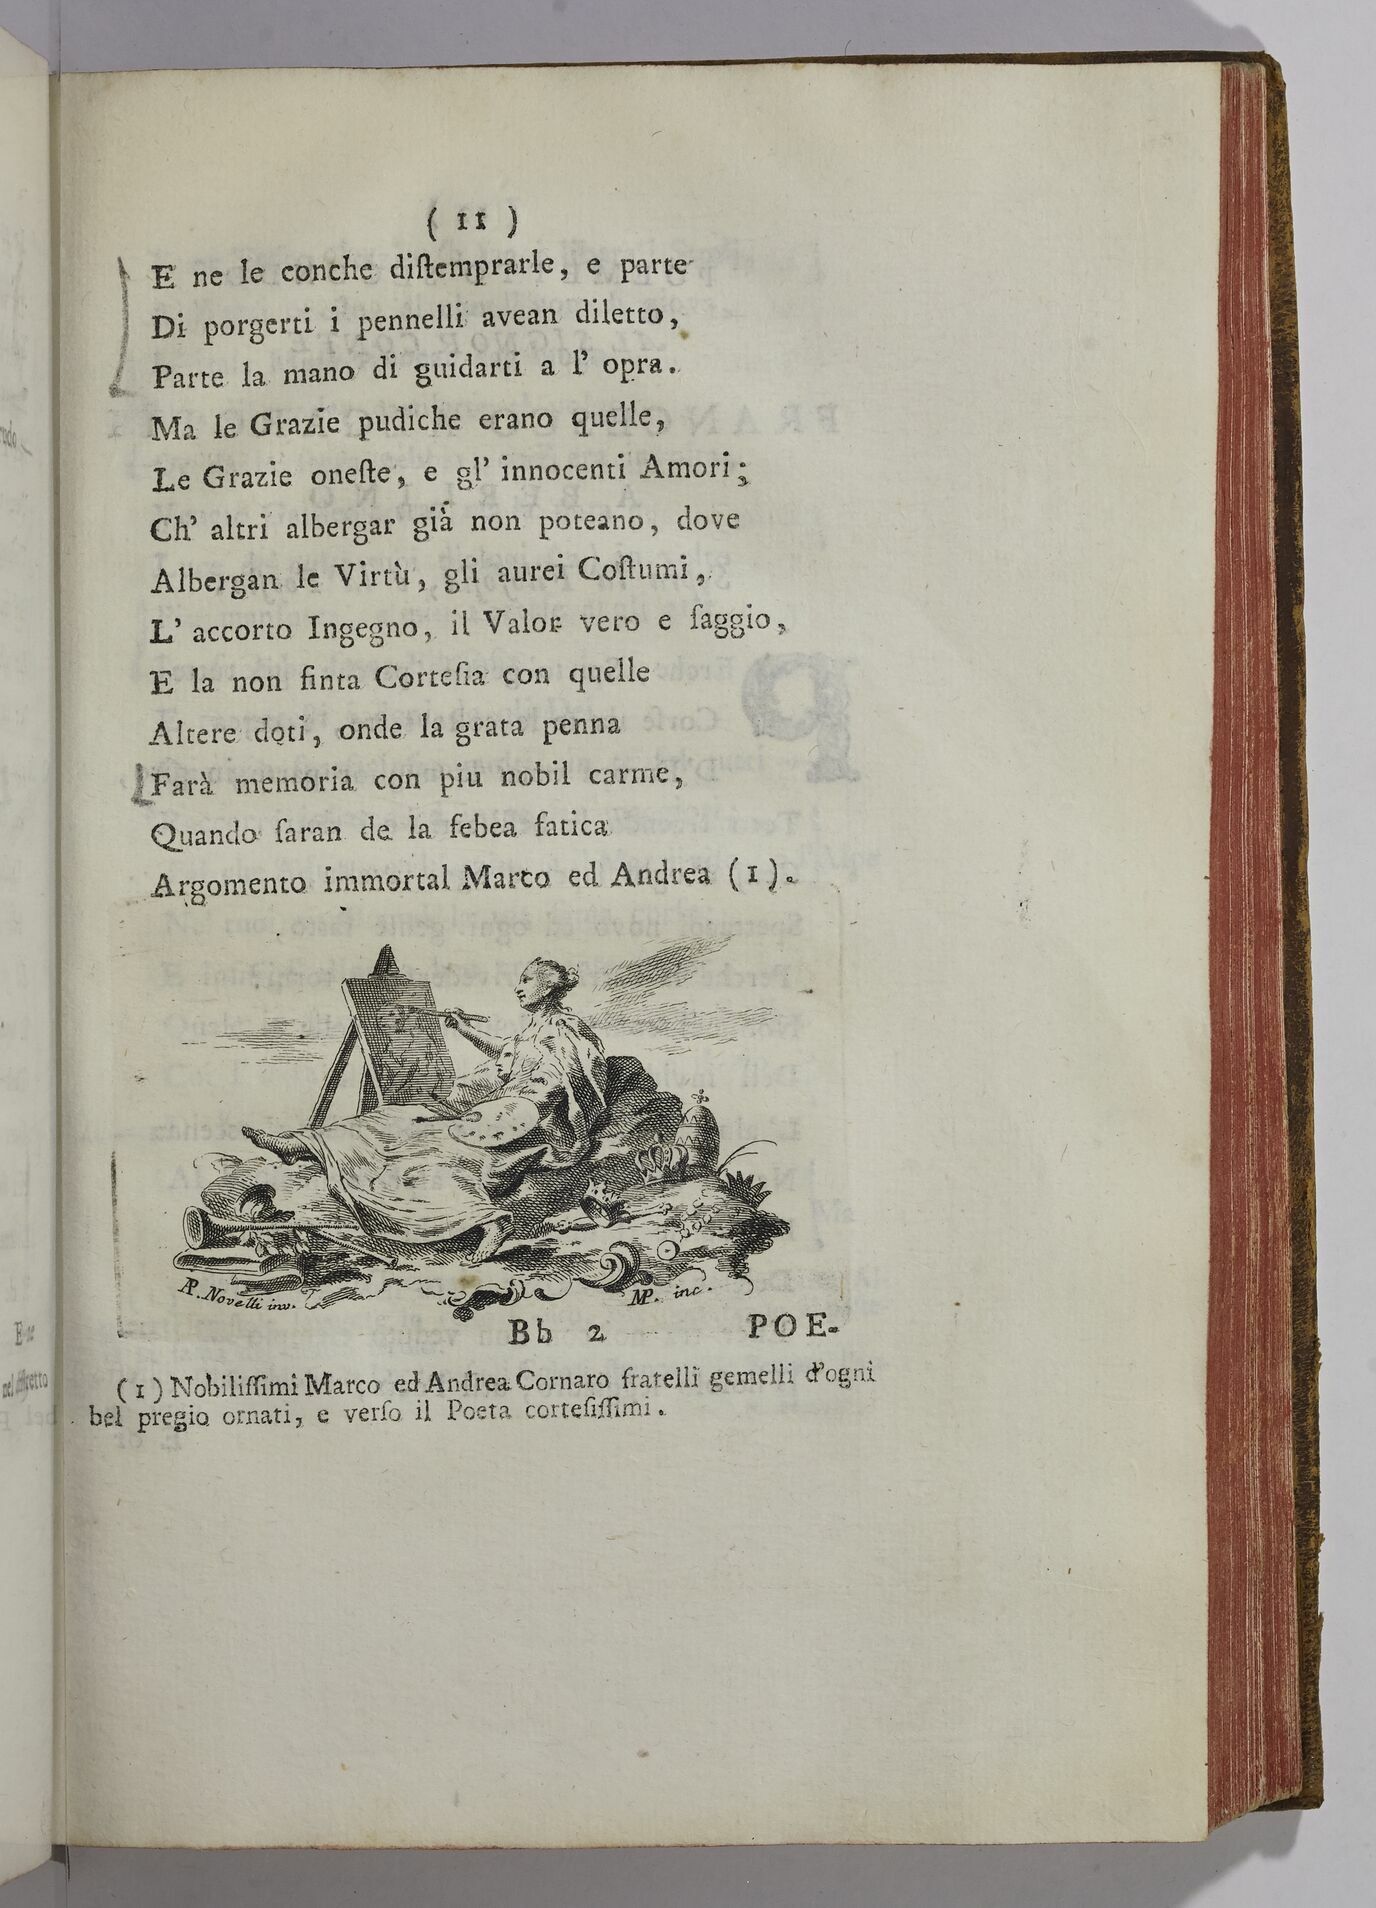 ( 11 )
E ne le conche diſtemprarle, e parte
Di porgerti i pennelli avean diletto,
Parte la mano di guidarti a l' opra.
Ma le Grazie pudiche erano quelle,
Le Grazie oneſte, e gl' innocenti Amori;
Ch' altri albergar già non poteano, dove
Albergan le Virtù, gli aurei Coſtumi,
L' accorto Ingegno, il Valor vero e ſaggio,
E la non finta Corteſia con quelle
Altere doti, onde la grata penna
Farà memoria con piu nobil carme,
Quando ſaran de la febea fatica
Argomento immortal Marco ed Andrea (1).
AP. Novelli inv.
MP. inc.
Bb 2
POE-
(1) Nobiliſſimi Marco ed Andrea Cornaro fratelli gemelli d'ogni
bel pregio ornati, e verſo il Poeta corteſiſſimi.